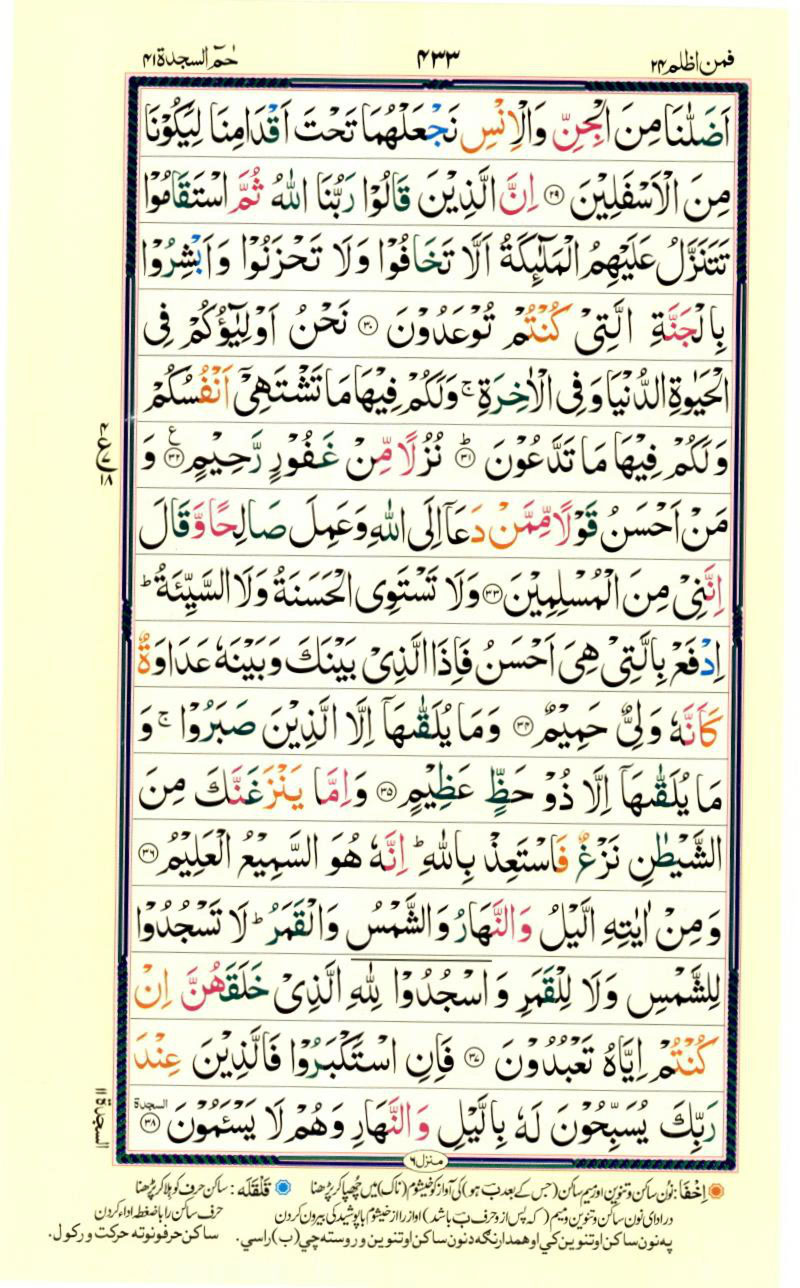 فمن اظلم ۲۴ ۴۳۳ حٰمٓ السجدة ۴۱
اَضَلّٰنَا مِنَ الْجِنِّ وَالْاِنْسِ نَجْعَلْهُمَا تَحْتَ اَقْدَامِنَا لِيَكُوْنَا
مِنَ الْاَسْفَلِيْنَ ۲۹ اِنَّ الَّذِيْنَ قَالُوْا رَبُّنَا اللّٰهُ ثُمَّ اسْتَقَامُوْا
تَتَنَزَّلُ عَلَيْهِمُ الْمَلٰٓئِكَةُ اَلَّا تَخَافُوْا وَلَا تَحْزَنُوْا وَاَبْشِرُوْا
بِالْجَنَّةِ الَّتِيْ كُنْتُمْ تُوْعَدُوْنَ ۳۰ نَحْنُ اَوْلِيٰٓؤُكُمْ فِى
الْحَيٰوةِ الدُّنْيَا وَفِى الْاٰخِرَةِ ۚ وَلَكُمْ فِيْهَا مَا تَشْتَهِيْٓ اَنْفُسُكُمْ
وَلَكُمْ فِيْهَا مَا تَدَّعُوْنَ ؕ ۳۱ نُزُلًا مِّنْ غَفُوْرٍ رَّحِيْمٍ ع ۳۲ وَ
۴ ع ۷ ۱۸
مَنْ اَحْسَنُ قَوْلًا مِّمَّنْ دَعَآ اِلَى اللّٰهِ وَعَمِلَ صَالِحًا وَّقَالَ
اِنَّنِيْ مِنَ الْمُسْلِمِيْنَ ۳۳ وَلَا تَسْتَوِى الْحَسَنَةُ وَلَا السَّيِّئَةُ ؕ
اِدْفَعْ بِالَّتِيْ هِيَ اَحْسَنُ فَاِذَا الَّذِيْ بَيْنَكَ وَبَيْنَهٗ عَدَاوَةٌ
كَاَنَّهٗ وَلِيٌّ حَمِيْمٌ ۳۴ وَمَا يُلَقّٰىهَآ اِلَّا الَّذِيْنَ صَبَرُوْا ۚ وَ
مَا يُلَقّٰىهَآ اِلَّا ذُوْ حَظٍّ عَظِيْمٍ ۳۵ وَاِمَّا يَنْزَغَنَّكَ مِنَ
الشَّيْطٰنِ نَزْغٌ فَاسْتَعِذْ بِاللّٰهِ ؕ اِنَّهٗ هُوَ السَّمِيْعُ الْعَلِيْمُ ۳۶
وَمِنْ اٰيٰتِهِ الَّيْلُ وَالنَّهَارُ وَالشَّمْسُ وَالْقَمَرُ ؕ لَا تَسْجُدُوْا
لِلشَّمْسِ وَلَا لِلْقَمَرِ وَاسْجُدُوْا لِلّٰهِ الَّذِيْ خَلَقَهُنَّ اِنْ
كُنْتُمْ اِيَّاهُ تَعْبُدُوْنَ ۳۷ فَاِنِ اسْتَكْبَرُوْا فَالَّذِيْنَ عِنْدَ
رَبِّكَ يُسَبِّحُوْنَ لَهٗ بِالَّيْلِ وَالنَّهَارِ وَهُمْ لَا يَسْـَٔمُوْنَ السجدة ۳۸
السجدة ۱۱
منزل ۶
اِخْفَا: نون ساکن و تنوین اور میم ساکن (جس کے بعد ب ہو) کی آواز کو خیشوم (ناک) میں چھپا کر پڑھنا قَلْقَلَه: ساکن حرف کو ہلا کر پڑھنا
در ادای نون ساکن و تنوین و میم (که پس از و حرف ب باشد) آواز را از خیشوم با پوشیدگی بیرون کردن حرف ساکن را با ضغطه ادا کردن
په نون ساکن او تنوین کې او همدارنګه د نون ساکن او تنوین وروسته چې (ب) راسي. ساکن حرفونو ته حرکت ورکول.